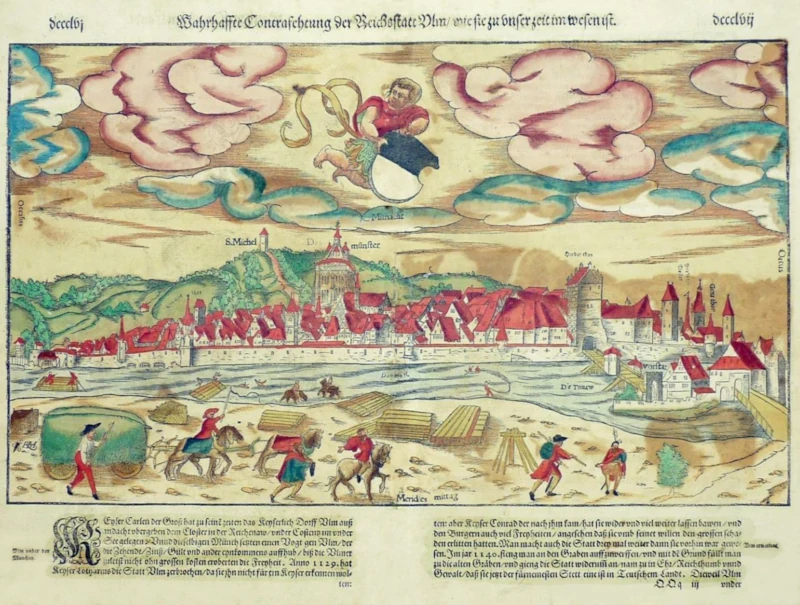 dccclvj
Wahrhaffte Contrafehtung der Reichsstatt Vlm/ wie sie zu vnser zeit im wesen ist.
dccclvij
Occasus
Ortus
S. Michel
D. münster
Die Tonaw
Meridies mittag
KEyser Carlen der Groß hat zu seinen zeiten das Keyserlich Dorff Vlm auß
andacht vbergeben dem Closter in der Reichenaw/ vnder Costentz im vnder
See gelegen. Vnnd dieselbigen Münch setzten einen Vogt gen Vlm/ der
die Zehende/ Zinß/ Gült vnd ander eynkommens auffhub/ biß die Vlmer
zuletst nicht ohn grossen kosten eroberten die Freyheit. Anno 1129. hat
Keyser Lotharius die Statt Vlm zerbrochen/ da sie jhn nicht für ein Keyser erkennen wol-
ten:
Vlm vnder den
München.
ten: aber Keyser Conrad der nach jhm kam/ hat sie wider vnd viel weiter lassen bawen/ vnd
den Burgern auch viel Freyheiten/ angesehen daß sie vmb seinet willen den grossen scha-
den erlitten hatten. Man macht auch die Statt drey mal weiter dann sie vorhin war gewe-
sen. Im jar 1140. fieng man an den Graben auff zuwerffen/ vnd mit dẽ Grund füllt man
zu die alten Gräben/ vnd gieng die Statt widerumb an/ nam zu in Ehr/ Reichthumb vnd
Gewalt/ daß sie jetzt der fürnemesten Stett eine ist in Teutschem Land. Dieweil Vlm
QQq iij vnder